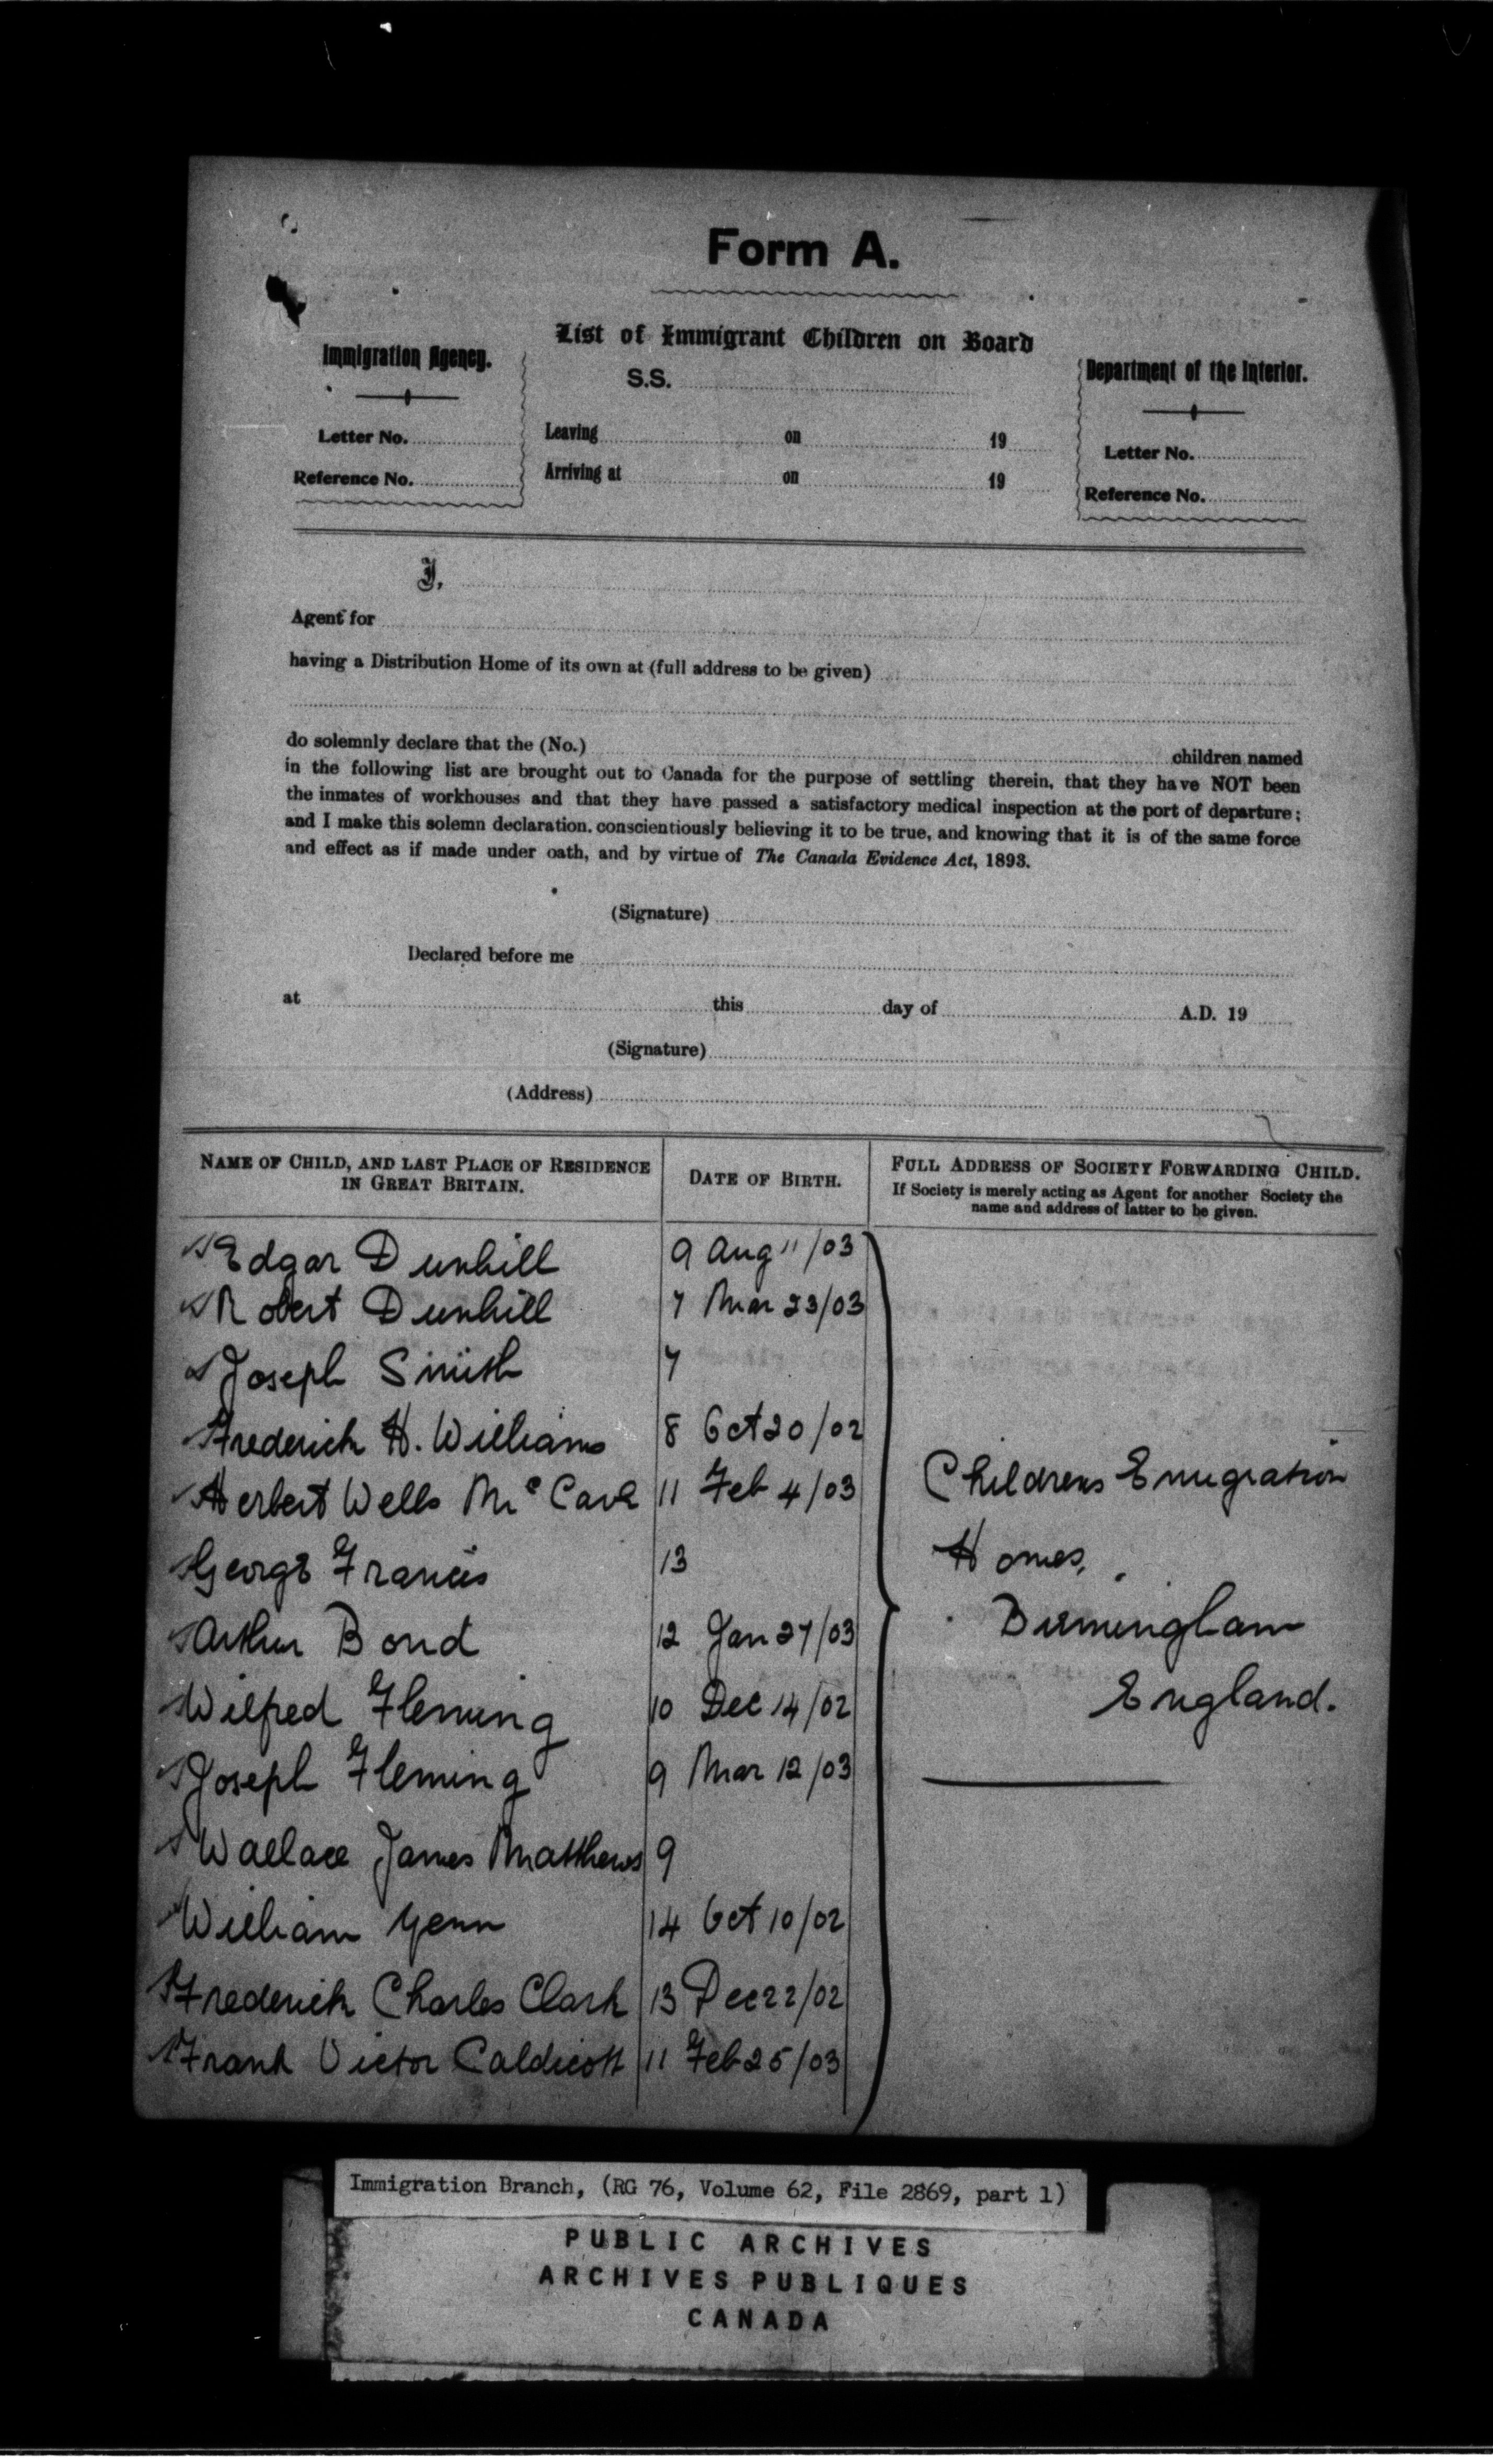 Form A.
List of Immigrant Children on Board
S.S.
Leaving on 19
Arriving at on 19
Immigration Agency.
Letter No.
Reference No.
Department of the Interior.
Letter No.
Reference No.
I,
Agent for
having a Distribution Home of its own at (full address to be given)
do solemnly declare that the (No.) children named
in the following list are brought out to Canada for the purpose of settling therein, that they have NOT been
the inmates of workhouses and that they have passed a satisfactory medical inspection at the port of departure;
and I make this solemn declaration, conscientiously believing it to be true, and knowing that it is of the same force
and effect as if made under oath, and by virtue of The Canada Evidence Act, 1893.
(Signature)
Declared before me
at this day of A.D. 19
(Signature)
(Address)
NAME OF CHILD, AND LAST PLACE OF RESIDENCE
IN GREAT BRITAIN.
DATE OF BIRTH.
FULL ADDRESS OF SOCIETY FORWARDING CHILD.
If Society is merely acting as Agent for another Society the
name and address of latter to be given.
Edgar Dunhill 9 Aug 11/03
Robert Dunhill 7 Mar 23/03
Joseph Smith 7
Frederick H. Williams 8 Oct 20/02
Herbert Wells Mc Cave 11 Feb 4/03
George Francis 13
Arthur Bond 12 Jan 27/03
Wilfred Fleming 10 Dec 14/02
Joseph Fleming 9 Mar 12/03
Wallace James Matthews 9
William Yenn 14 Oct 10/02
Frederick Charles Clark 13 Dec 22/02
Frank Victor Caldicott 11 Feb 25/03
Childrens Emigration
Homes,
Birmingham
England.
Immigration Branch, (RG 76, Volume 62, File 2869, part 1)
PUBLIC ARCHIVES
ARCHIVES PUBLIQUES
CANADA